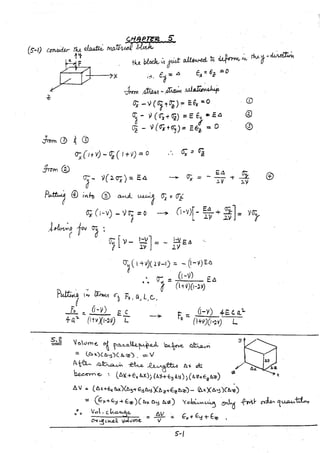 CHAPTER 5
(5-1) consider the elastic material block
the block is just allowed to deform in the y-direction
∴ ε_y = Δ   ε_x = ε_z = 0
from stress-strain relationship
σ_x - ν(σ_y + σ_z) = E ε_x = 0   ①
σ_y - ν(σ_x + σ_z) = E ε_y = EΔ   ②
σ_z - ν(σ_x + σ_y) = E ε_z = 0   ③
From ① & ③
σ_x(1+ν) - σ_z(1+ν) = 0   ∴ σ_x = σ_z
From ②
σ_y - ν(2σ_x) = EΔ → σ_x = - EΔ/2ν + σ_y/2ν   ④
Putting ④ into ③ and using σ_x = σ_z
σ_x(1-ν) - νσ_y = 0 → (1-ν)[- EΔ/2ν + σ_y/2ν] = νσ_y
Solving for σ_y :
σ_y [ν - (1-ν)/2ν] = - (1-ν)/2ν EΔ
σ_y(1+ν)(2ν-1) = -(1-ν)EΔ
∴ σ_y = (1-ν)/((1+ν)(1-2ν)) EΔ
Putting in terms of F₀, a, L, C.
F₀/4a² = (1-ν)/((1+ν)(1-2ν)) E C/L → F₀ = (1-ν)/((1+ν)(1-2ν)) 4ECa²/L
5.2 Volume of parallelepiped before strain
= (Δx)(Δy)(Δz) = V
After strain the lengths Δx etc
become : (Δx+ε_xΔx); (Δy+ε_yΔy); (Δz+ε_zΔz)
ΔV = (Δx+ε_xΔx)(Δy+ε_yΔy)(Δz+ε_zΔz) - (Δx)(Δy)(Δz)
= (ε_x+ε_y+ε_z)(Δx Δy Δz) retaining only first order quantities
∴ Vol. change / Original volume = ΔV/V = ε_x + ε_y + ε_z .
5-1